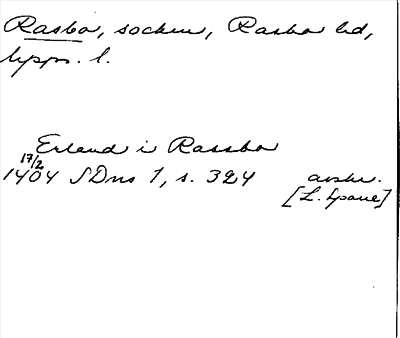 Rasbo, socken, Rasbo hd,
Upps. l.
Erland i Rassbo
17/2
1404 SDns 1, s. 324 avskr.
[L. Spane]